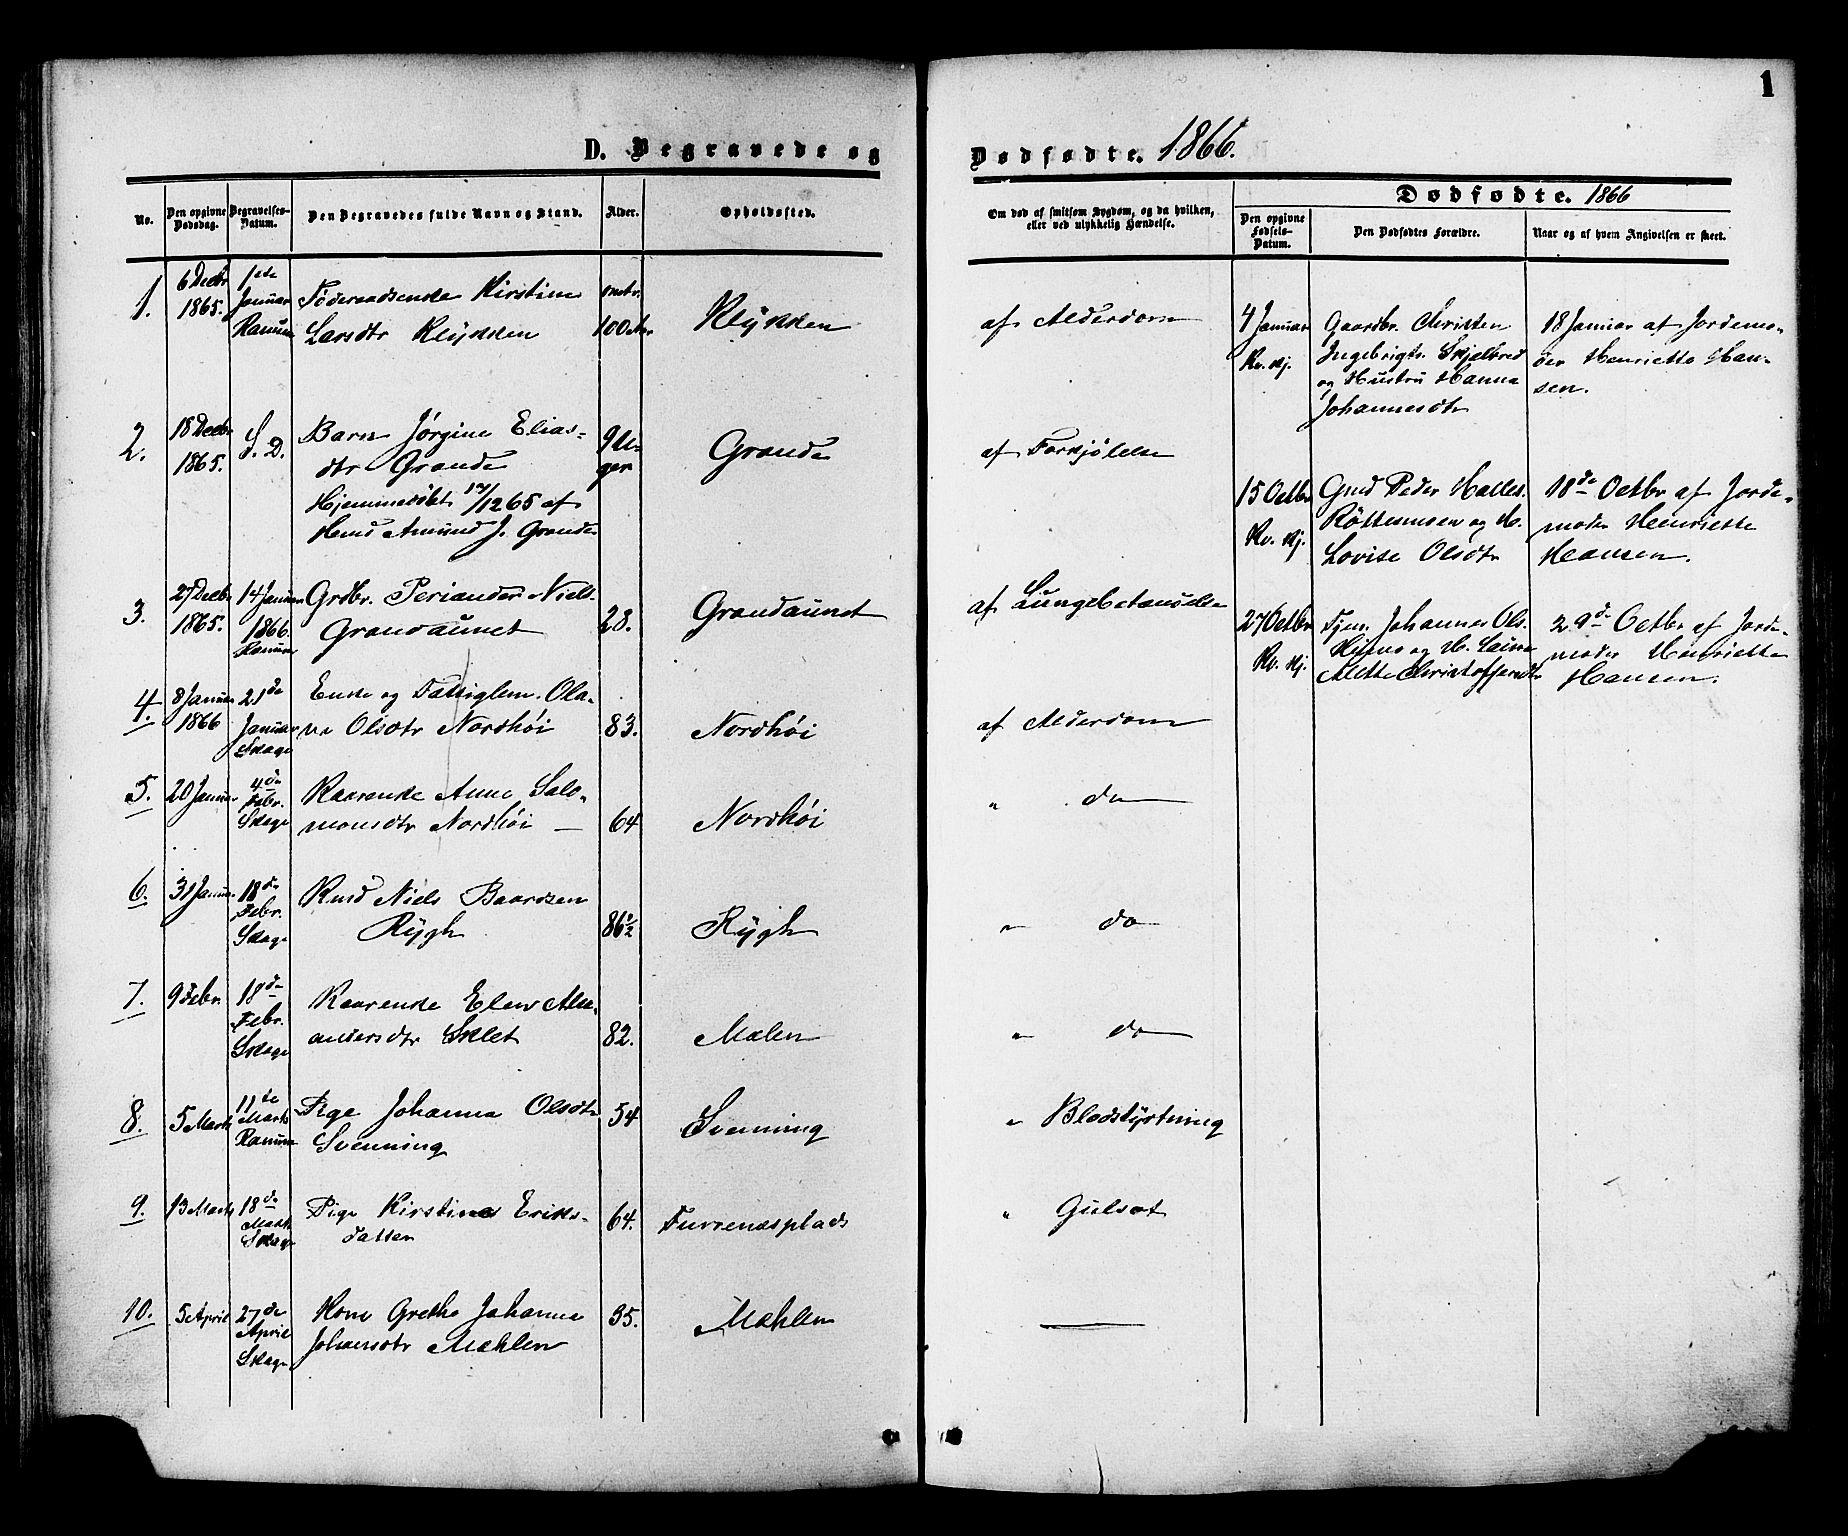 1
D. Begravede og
Dødfødte. 1866.
No.
Den opgivne Dødsdag.
Begravelses-Datum.
Den Begravedes fulde Navn og Stand.
Alder.
Opholdssted.
Om død af smitsom Sygdom, og da hvilken,
eller ved ulykkelig Hændelse.
Dødfødte. 1866
Den opgivne Fødsels-Datum.
Den Dødfødtes Forældre.
Naar og af hvem Angivelsen er skeet.
1. 6 Decbr 1865. 1ste Januar Ranum
Føderaadsenke Kirstine
Larsdtr Klykken
omtr. 100 Aar
Klykken
af Alderdom
2. 18 Decbr 1865. S. D.
Barn Jørgine Elias-
dtr Grande
Hjemmedøbt /12 65 af
Amund J. Grande
9 Uger
Grande
af Forkjølelse
3. 27 Decbr 1865. 14 Januar 1866. Ranum
Grdbr. Periander Niels.
Grandaunet
28.
Grandaunet
af Lungebetændelse
4. 8 Januar 1866 21de Januar Skage
Enke og Fattiglem. Ola-
va Olsdtr Nordhøi
83.
Nordhøi
af Alderdom
5. 20 Januar 4de Febr. Skage
Kaarenke Anne Salo-
monsdtr Nordhøi —
64
Nordhøi
" do
6. 31 Januar 18de Febr. Skage
Niels Baardsen
Rygh
86½
Rygh
" do
7. 9 Febr 18de Febr. Skage
Kaarenke Elen Alex-
andersdtr Sklet
82.
Mælen
" do
8. 5 Marts 11te Marts Ranum
Pige Johanna Olsdtr
Svenning
54
Svenning
" Blodstyrtning
9. 13 Marts 18de Marts Skage
Pige Kirstine Eriks-
datter
64.
Furrenesplads
" Gulsot
10. 5 April 27de April Skage
Kone Grethe Johanna
Johansdtr Mæhlen
35.
Mæhlen
4 Januar
Kv. kj.
Gaardbr. Christen
Ingebrigts. Skjelbred
og Hustru Hanna
Johannesdtr
18 Januar af Jordemo-
der Henriette Han-
sen.
15 Octbr
Kv. kj.
Gmd Peder Halles.
Røttesmoen og H.
Lovise Olsdtr
18de Octbr af Jorde-
moder Henriette
Hansen.
27 Octbr
Kv. kj.
Tjen. Johannes Ols.
og H.
Mette Christoffersdtr
29de Octbr af Jorde-
moder Henriette
Hansen.